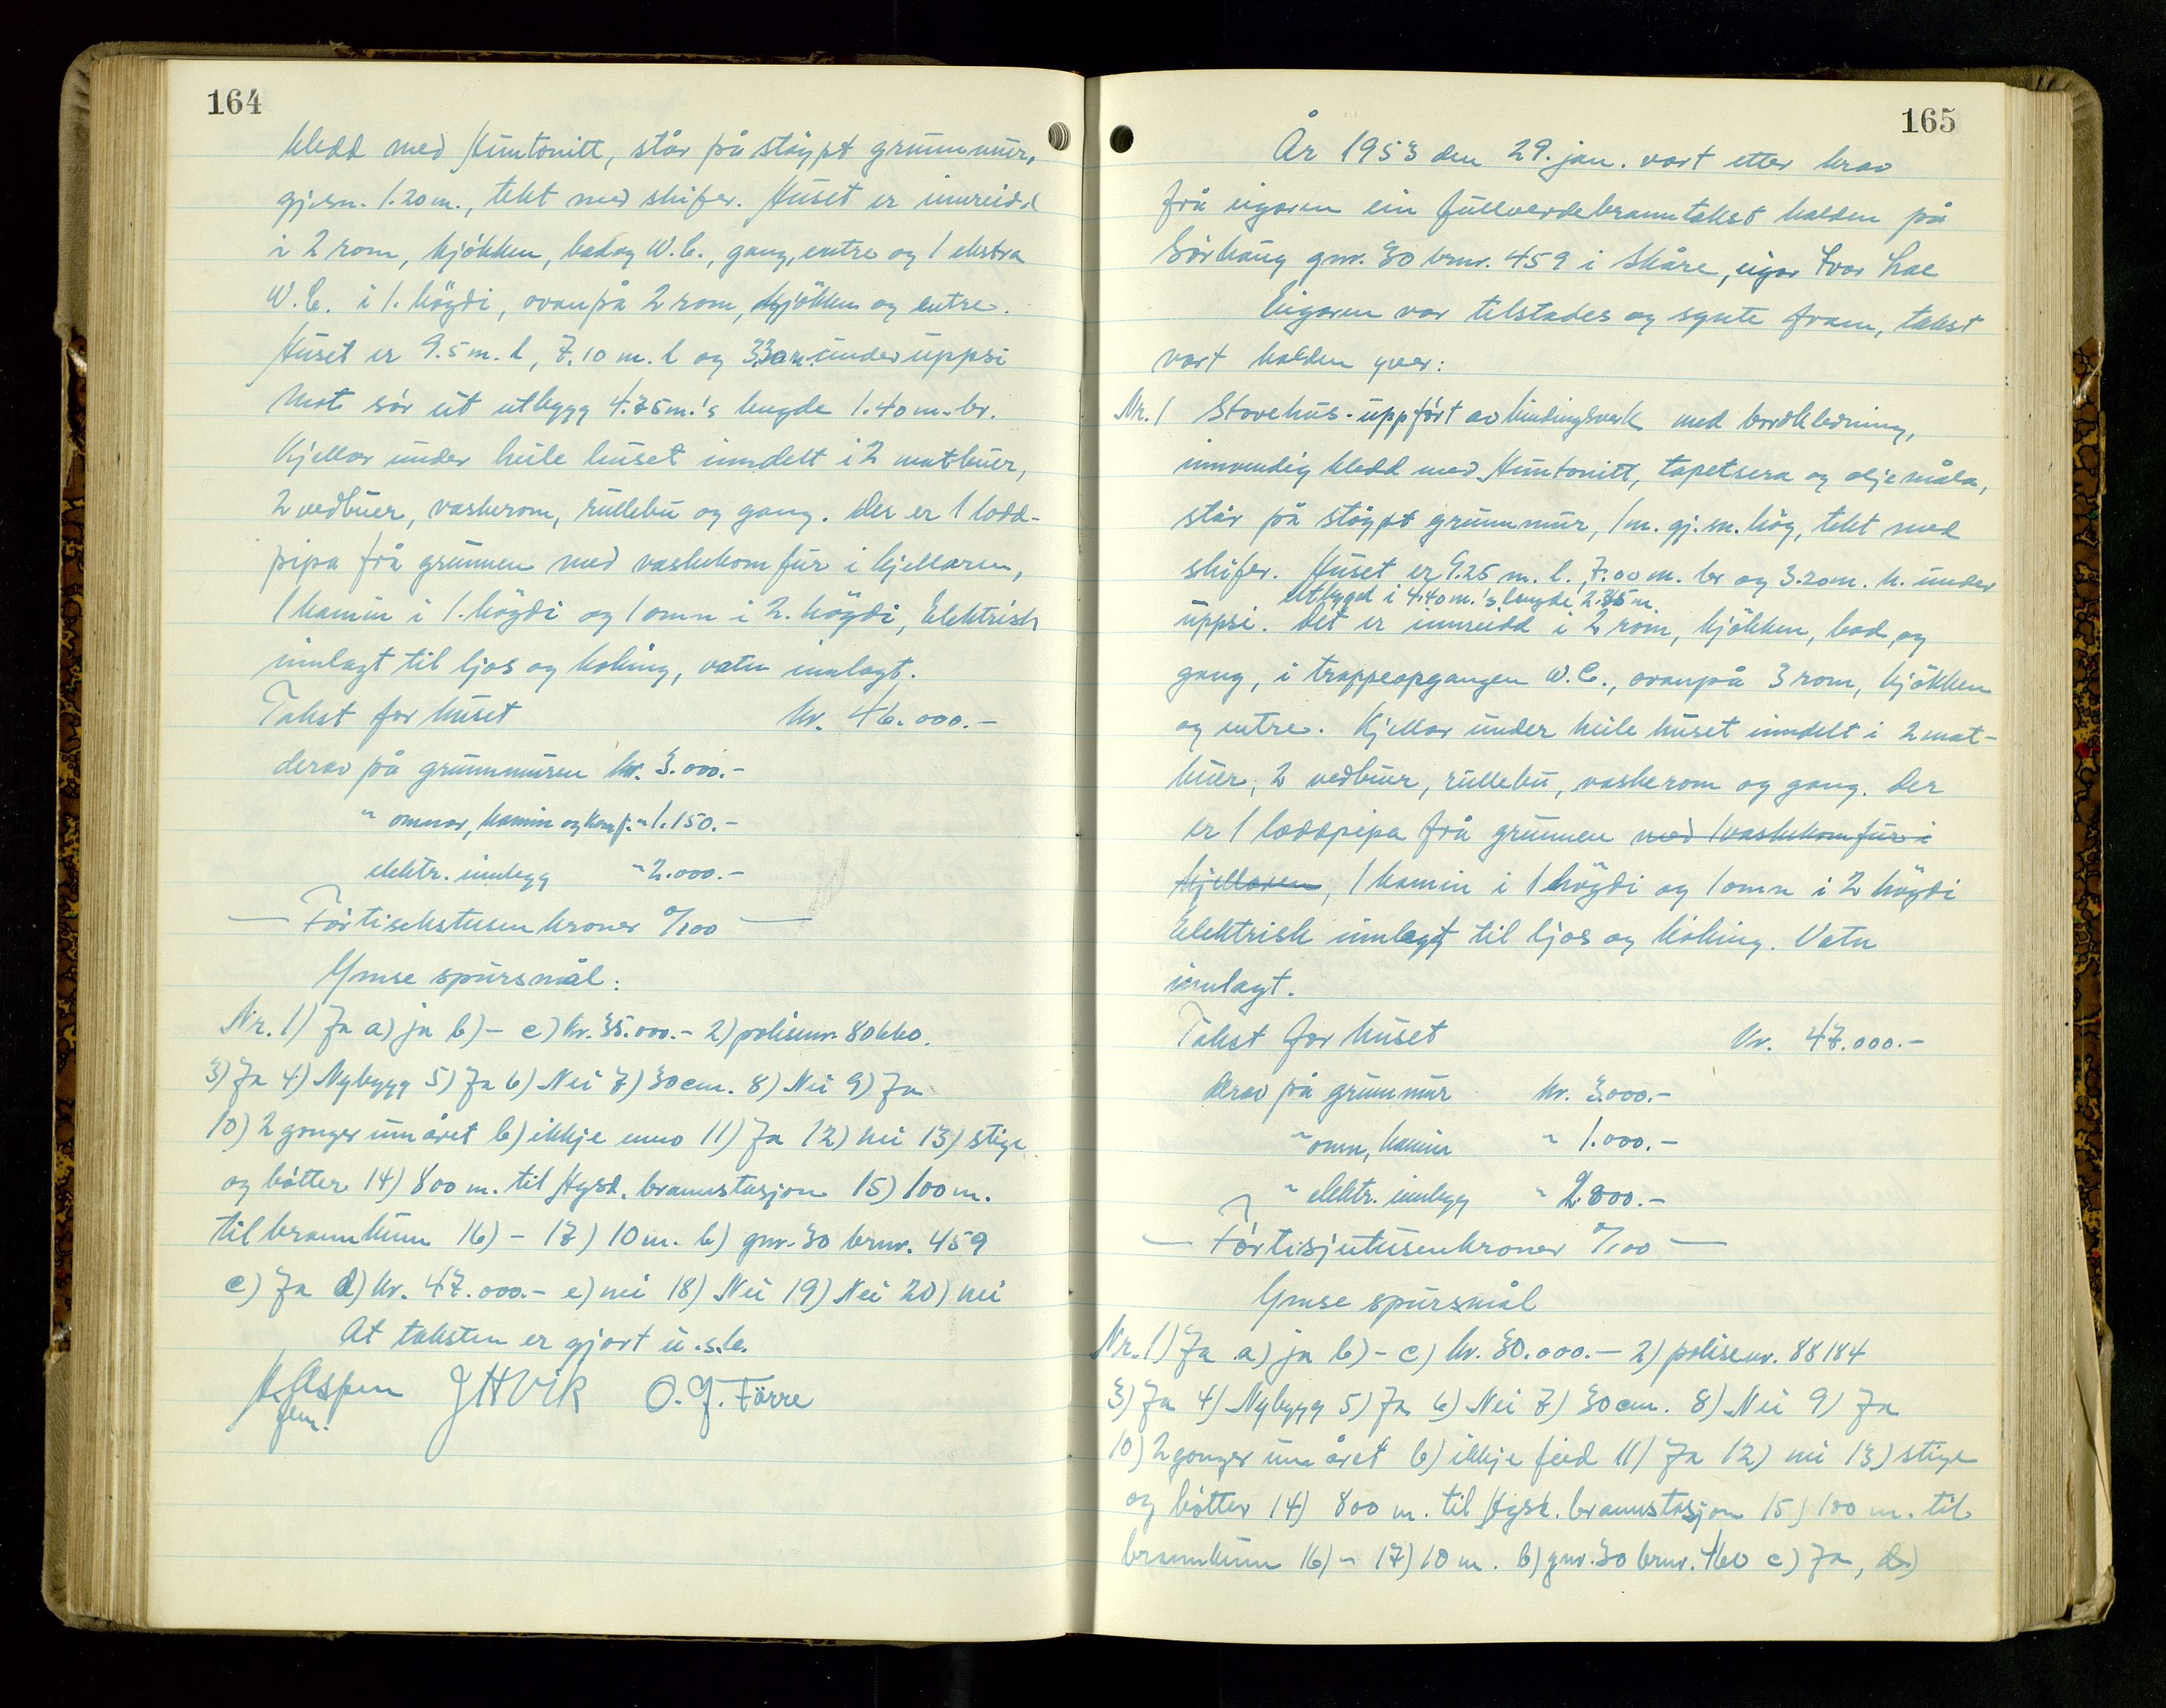 164
kledd med Huntonitt, står på støypt grunnmur,
gj.sn. 1.20 m., tekt med skifer. Huset er innreidd
i 2 rom, kjökken, bad og W.C., gang, entre og 1 ekstra
W.C. i 1. högdi, ovanpå 2 rom, kjökken og entre.
Huset er 9.5 m. l, 7.10 m. b og 3.30 m. under uppsi
Mot sör üt utbygg 4.75 m.'s lengde 1.40 m. br.
Kjellar under heile huset inndelt i 2 matbuer,
2 vedbuer, vaskerom, rullebu og gang. Der er 1 lodd-
pipa frå grunnen med vaskekomfur i kjellaren,
1 kamin i 1. högdi og 1 omn i 2. högdi, Elektrisk
innlagt til ljos og koking, vatn innlagt.
Takst for huset kr. 46.000.-
derav på grunnmuren kr. 3.000.-
" omnar, kamin og komf. " 1.150.-
elektr. innlegg " 2.000.-
— Förtisekstusen kroner 0/100 —
Ymse spursmål:
Nr. 1) Ja a) ja b) - c) kr. 35.000.- 2) polisenr. 80660.
3) Ja 4) Nybygg 5) Ja 6) Nei 7) 30 cm. 8) Nei 9) Ja
10) 2 gonger um året b) ikkje enno 11) Ja 12) nei 13) stige
og bötter 14) 800 m. til Hgsd. brannstasjon 15) 100 m.
til brannkum 16) - 17) 10 m. b) gnr. 30 brnr. 459
c) Ja d) kr. 47.000.- e) nei 18) Nei 19) Nei 20) nei
At taksten er gjort u.s.b.
Aspen JHVik O. J. Förre
165
År 1953 den 29. jan. vart etter krav
frå eigaren ein fullverdebranntakst halden på
Sörhaug gnr. 30 brnr. 459 i Skåre, eigar Ivar Lae
Eigaren var tilstades og synte fram, takst
vart halden yver:
Nr. 1 Stovehus - uppfört av bindingsverk med bordkledning,
innvendig kledd med Huntonitt, tapetsera og oljemåla,
står på støypt grunnmur, 1 m. gj.sn. hög, tekt med
skifer. Huset er 9.25 m. l., 7.00 m. br og 3.20 m. h. under
utbygd i 4.40 m.'s lengde 2.35 m.
uppsi. Det er innreidd i 2 rom, kjökken, bad, og
gang, i trappeopgangen W.C., ovanpå 3 rom, kjökken
og entre. Kjellar under heile huset inndelt i 2 mat-
buer, 2 vedbuer, rullebu, vaskerom og gang. Der
er 1 loddpipa frå grunnen med 1 vaskekomfur i
kjellaren, 1 kamin i 1 högdi og 1 omn i 2 högdi
Elektrisk innlagt til ljos og koking. Vatn
innlagt.
Takst for huset kr. 47.000.-
derav på grunnmur kr. 3.000.-
" omn, kamin " 1.000.-
" elektr. innlegg " 2.800.-
— Förtisjutusenkroner 0/100 —
Ymse spursmål
Nr. 1) Ja a) ja b) - c) kr. 30.000.- 2) polisenr. 88184
3) Ja 4) Nybygg 5) Ja 6) Nei 7) 30 cm. 8) Nei 9) Ja
10) 2 gonger um året b) ikkje feid 11) Ja 12) nei 13) stige
og bötter 14) 800 m. til Hgsd. brannstasjon 15) 100 m. til
brannkum 16) - 17) 10 m. b) gnr. 30 brnr. 460 c) Ja, d)